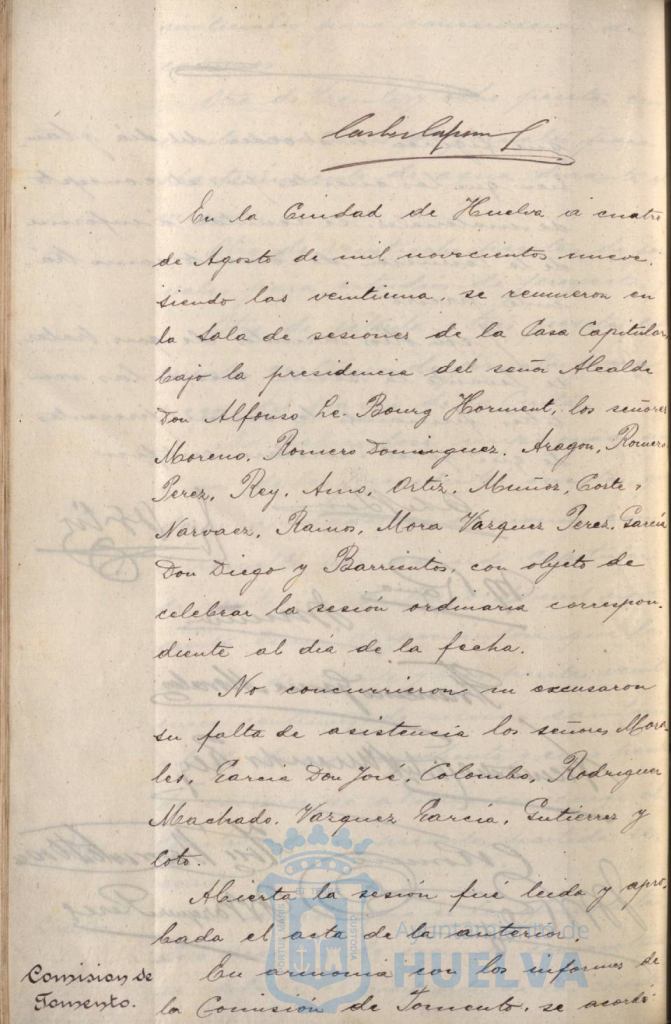 En la Ciudad de Huelva á cuatro
de Agosto de mil novecientos nueve,
siendo las veintiuna, se reunieron en
la Sala de sesiones de la Casa Capitular,
bajo la presidencia del señor Alcalde
Don Alfonso Le-Bourg Horment, los señores
Moreno, Romero Dominguez, Aragon, Romero
Perez, Rey, Amo, Ortiz, Muñoz, Corte,
Narvaez, Ramos, Mora Vazquez Perez, García
Don Diego y Barrientos, con objeto de
celebrar la sesión ordinaria correspon-
diente al día de la fecha.
No concurrieron ni excusaron
su falta de asistencia los señores Mora-
les, Garcia Don José, Colombo, Rodriguez
Machado, Vazquez García, Gutierrez y
Coto.
Abierta la sesión fué leida y apro-
bada el acta de la anterior.
Comision de
Fomento.
En armonia con los informes de
la Comisión de Fomento, se acordó:
Ayuntamiento de
HUELVA